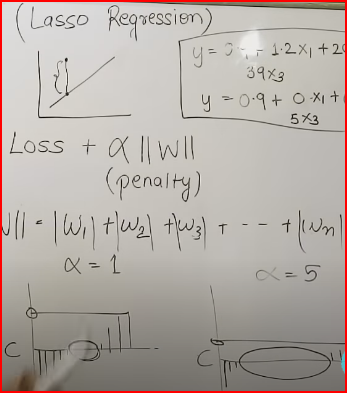 (Lasso Regression)
y = + 1.2x₁ +
39x₃
y = 0.9 + 0·x₁ +
5x3
Loss + α ||W||
(penalty)
|| = |W₁| + |W₂| + |W₃| + -- + |Wn|
α = 1
α = 5
C
C